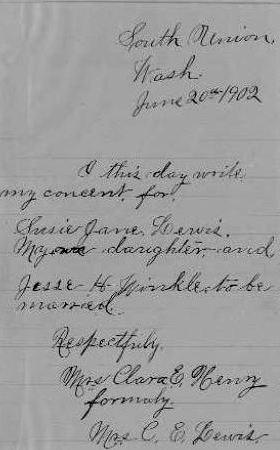 South Union,
Wash.
June 20th 1902
I this day write
my concent. for.
Susie Jane Lewis.
My own daughter. and
Jesse H. Winkle. to be
married.
Respectfuly.
Mrs Clara E. Henry
formaly.
Mrs. C. E. Lewis.